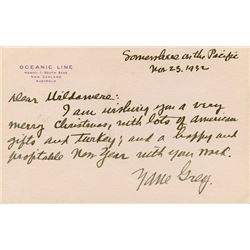 OCEANIC LINE
HAWAII : SOUTH SEAS
NEW ZEALAND
AUSTRALIA
Somewhere on the Pacific
Nov 23, 1932
Dear Mildamere:
I am wishing you a very
merry Christmas, with lots of american
gifts and turkey; and a happy and
profitable New Year with your work.
Zane Grey.